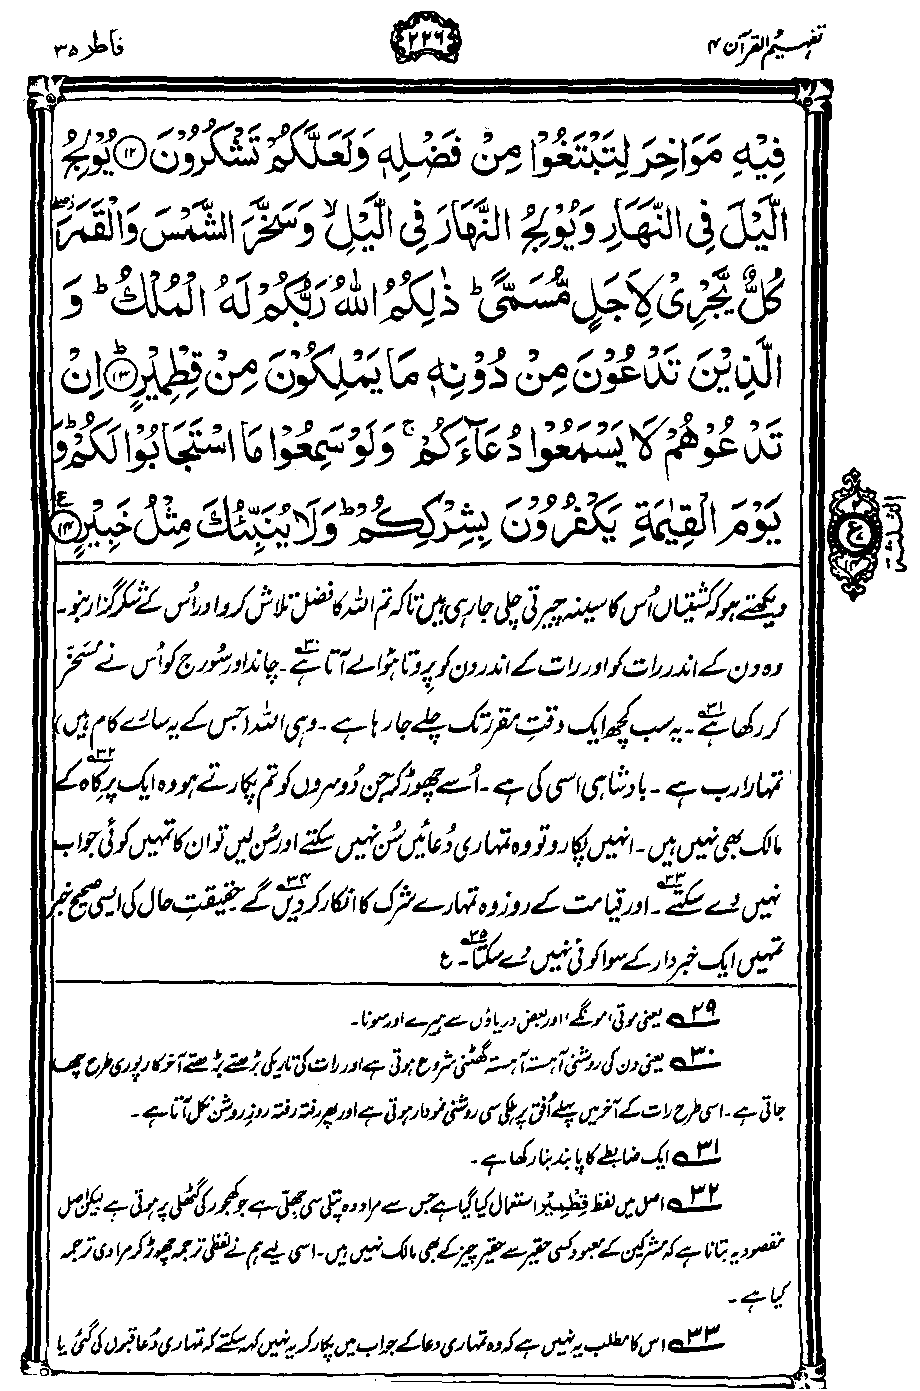 تفہیم القرآن ۴
۲۲۶
فاطر ۳۵
فِیْهِ مَوَاخِرَ لِتَبْتَغُوْا مِنْ فَضْلِهٖ وَلَعَلَّكُمْ تَشْكُرُوْنَ ﴿۱۲﴾ یُوْلِجُ
الَّیْلَ فِی النَّهَارِ وَیُوْلِجُ النَّهَارَ فِی الَّیْلِ ۙ وَسَخَّرَ الشَّمْسَ وَالْقَمَرَ ۖ
كُلٌّ یَّجْرِیْ لِاَجَلٍ مُّسَمًّی ؕ ذٰلِكُمُ اللّٰهُ رَبُّكُمْ لَهُ الْمُلْكُ ؕ وَ
الَّذِیْنَ تَدْعُوْنَ مِنْ دُوْنِهٖ مَا یَمْلِكُوْنَ مِنْ قِطْمِیْرٍ ﴿۱۳﴾ؕ اِنْ
تَدْعُوْهُمْ لَا یَسْمَعُوْا دُعَآءَكُمْ ۚ وَلَوْ سَمِعُوْا مَا اسْتَجَابُوْا لَكُمْ ؕ وَ
یَوْمَ الْقِیٰمَةِ یَكْفُرُوْنَ بِشِرْكِكُمْ ؕ وَلَا یُنَبِّئُكَ مِثْلُ خَبِیْرٍ ﴿۱۴﴾ ع
دیکھتے ہو کہ کشتیاں اُس کا سینہ چیرتی چلی جا رہی ہیں تاکہ تم اللہ کا فضل تلاش کرو اور اُس کے شکر گزار بنو۔
وہ دن کے اندر رات کو اور رات کے اندر دن کو پروتا ہوا لے آتا ہے۳۰۔ چاند اور سورج کو اُس نے مسخّر
کر رکھا ہے۳۱۔ یہ سب کچھ ایک وقتِ مقرر تک چلے جا رہا ہے۔ وہی اللہ (جس کے یہ سارے کام ہیں)
تمہارا رب ہے۔ بادشاہی اسی کی ہے۔ اُسے چھوڑ کر جن دُوسروں کو تم پکارتے ہو وہ ایک پرِکاہ۳۲ کے
مالک بھی نہیں ہیں۔ انہیں پکارو تو وہ تمہاری دُعائیں سُن نہیں سکتے اور سُن لیں تو ان کا تمہیں کوئی جواب
نہیں دے سکتے۳۳۔ اور قیامت کے روز وہ تمہارے شرک کا انکار کر دیں گے۳۴۔ حقیقتِ حال کی ایسی صحیح خبر
تمہیں ایک خبردار کے سوا کوئی نہیں دے سکتا۳۵۔ ع
۲۹ یعنی موتی، مونگے، اور بعض دریاؤں سے ہیرے اور سونا۔
۳۰ یعنی دن کی روشنی آہستہ آہستہ گھٹنی شروع ہوتی ہے اور رات کی تاریکی بڑھتے بڑھتے آخر کار پوری طرح چھا
جاتی ہے۔ اسی طرح رات کے آخر میں پہلے اُفق پر ہلکی سی روشنی نمودار ہوتی ہے اور پھر رفتہ رفتہ روزِ روشن نکل آتا ہے۔
۳۱ ایک ضابطے کا پابند بنا رکھا ہے۔
۳۲ اصل میں لفظ قِطْمِیْر استعمال کیا گیا ہے جس سے مراد وہ پتلی سی جھلی ہے جو کھجور کی گٹھلی پر ہوتی ہے لیکن اصل
مقصود یہ بتانا ہے کہ مشرکین کے معبود کسی حقیر سے حقیر چیز کے بھی مالک نہیں ہیں۔ اسی لیے ہم نے لفظی ترجمہ چھوڑ کر مرادی ترجمہ
کیا ہے۔
۳۳ اس کا مطلب یہ نہیں ہے کہ وہ تمہاری دعا کے جواب میں پکار کر یہ نہیں کہہ سکتے کہ تمہاری دُعا قبول کی گئی یا